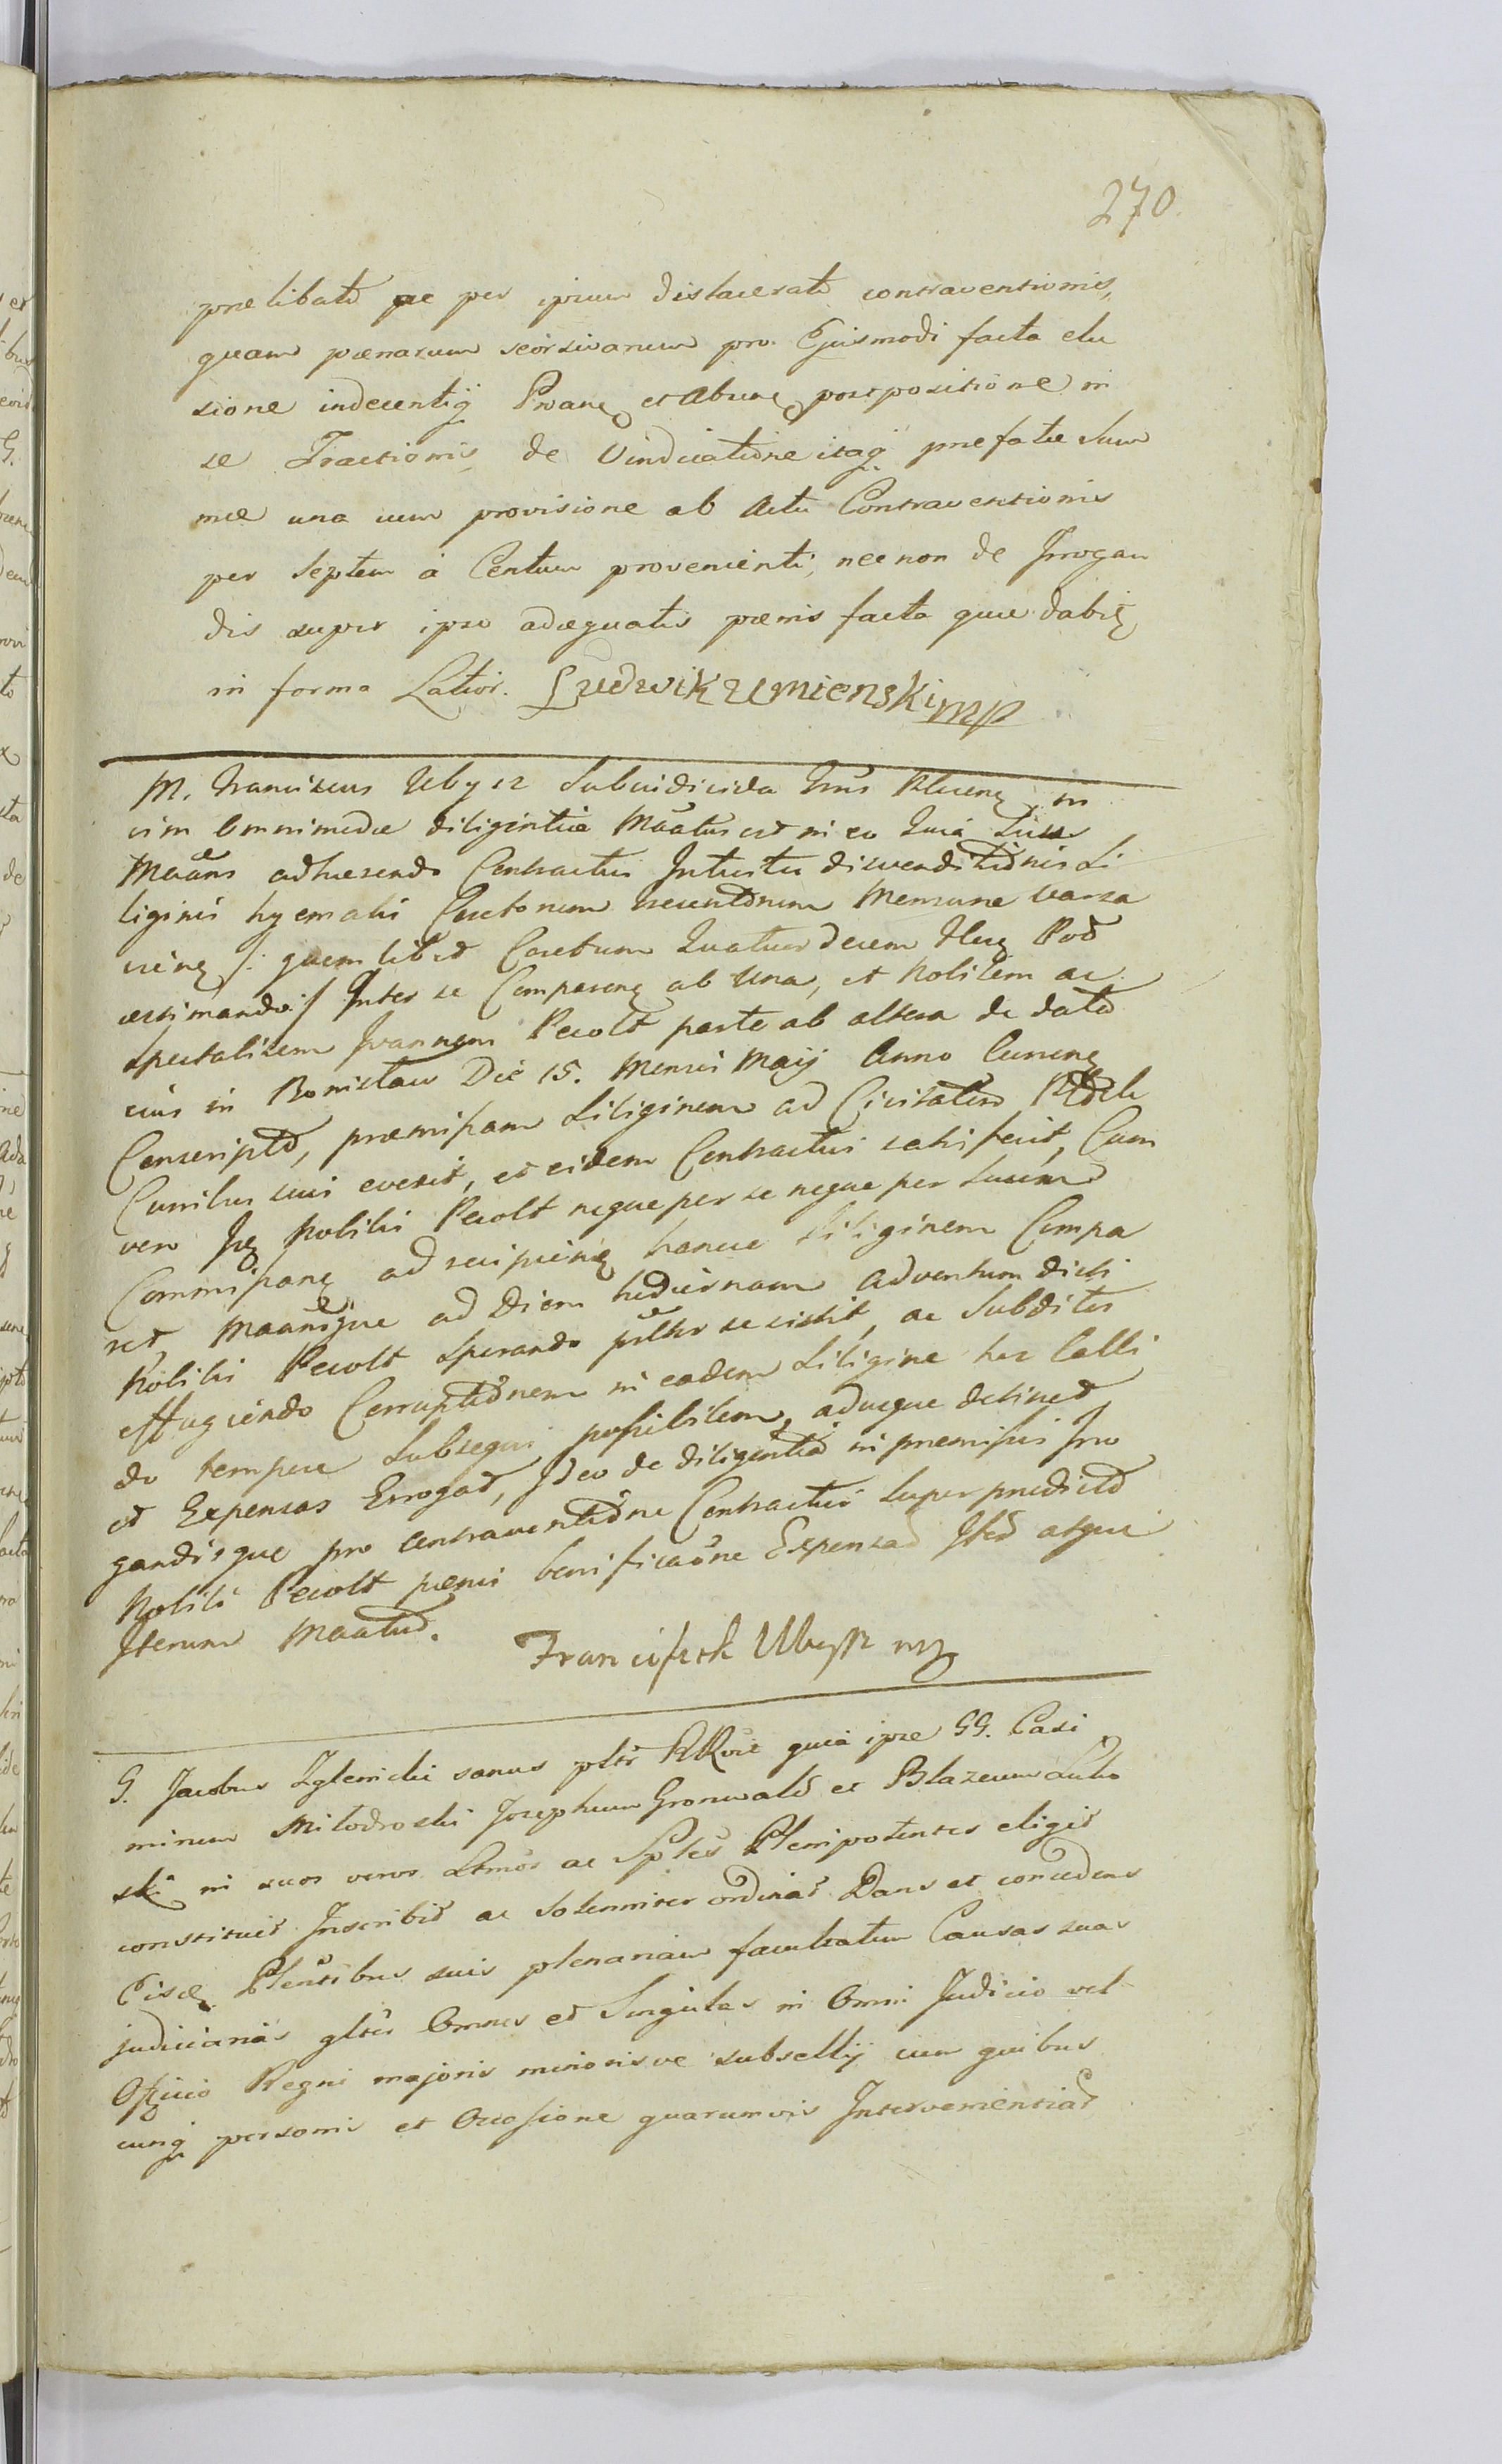 270.
prælibatæ ac per ipsum dislaceratæ contraventionis,
quam pœnarum seorsivarum pro Ejusmodi facta elu
sione indecentiq Prvarę et Abusę postpositione in
se Tractionis de Vindicatione itaq præfatæ Sum
mæ una cum provisione ab Actu Contraventionis
per Septem à Centum provenienti, nec non de Irrogan
dis super ipso adæquatis pœnis facta quæ dabit
in forma Latior. Ludwik Umienski mp
M. Franciscus Ubysz Subiudicida Trus Klucnę in
vim Omnimodæ diligentiæ Maatus est in eo Quia
Maans adhærendo Contractui Intuitu disvenditionis Si
liginis hyemalis Coretorum ducentorum Mensuræ Varsa
vienę /: quemlibet Coretum Quatuordecem flor Pol
æstimando:/ Inter se Comparenę ab Una, et Nobilem ac
Spectabilem Joannem Pecolt parte ab altera de data
ejus in Bonislaw Die 15. Mensis Maij Anno Currenę
Conscripto, præmissam Siliginem ad Civitatem
Curribus suis evexit, et eidem Contractui satisfecit, Cum
vero Ipę Nobilis Pecolt neque per se neque per suum
Commissarię ad recipienę hancce Siliginem Compa
ret, Maansque ad Diem hodiernam adventum dicti
Nobilis Pecolt sperando pnltr se sistit, ac Subditis
effugiendo Corruptionem in eadem Siligine hoc Calli
do tempore Subsequi possibilem, adusque detinet
et Expensas Errogat, Ideo de diligentia in præmissis Irro
gandisque pro contraventione Contractui super prædicto
Nobili Pecolt pœnis bonificaone Expensar Itd atque
Iterum Maatur.
Franciszek Ubysz mp
G. Jacobus Zglenicki sanus pltr RRvit quia ipse GG. Casi
mirum Milodroski Josephum Gronwald et Blazeum Lubo
ski in suos veros Ltmos ac Sples Plenipotentes eligit
constituit Inscribit ac Solenniter ordinat Dans et concedens
Eisdę Plentibus suis plenariam facultatem Causas suas
judiciarias gltes Omnes et Singulas in Omni Judicio vel
Officio Regni majoris minorisve subsellij cum quibus
cunq personis et Occasione quarumvis Intervenientiar